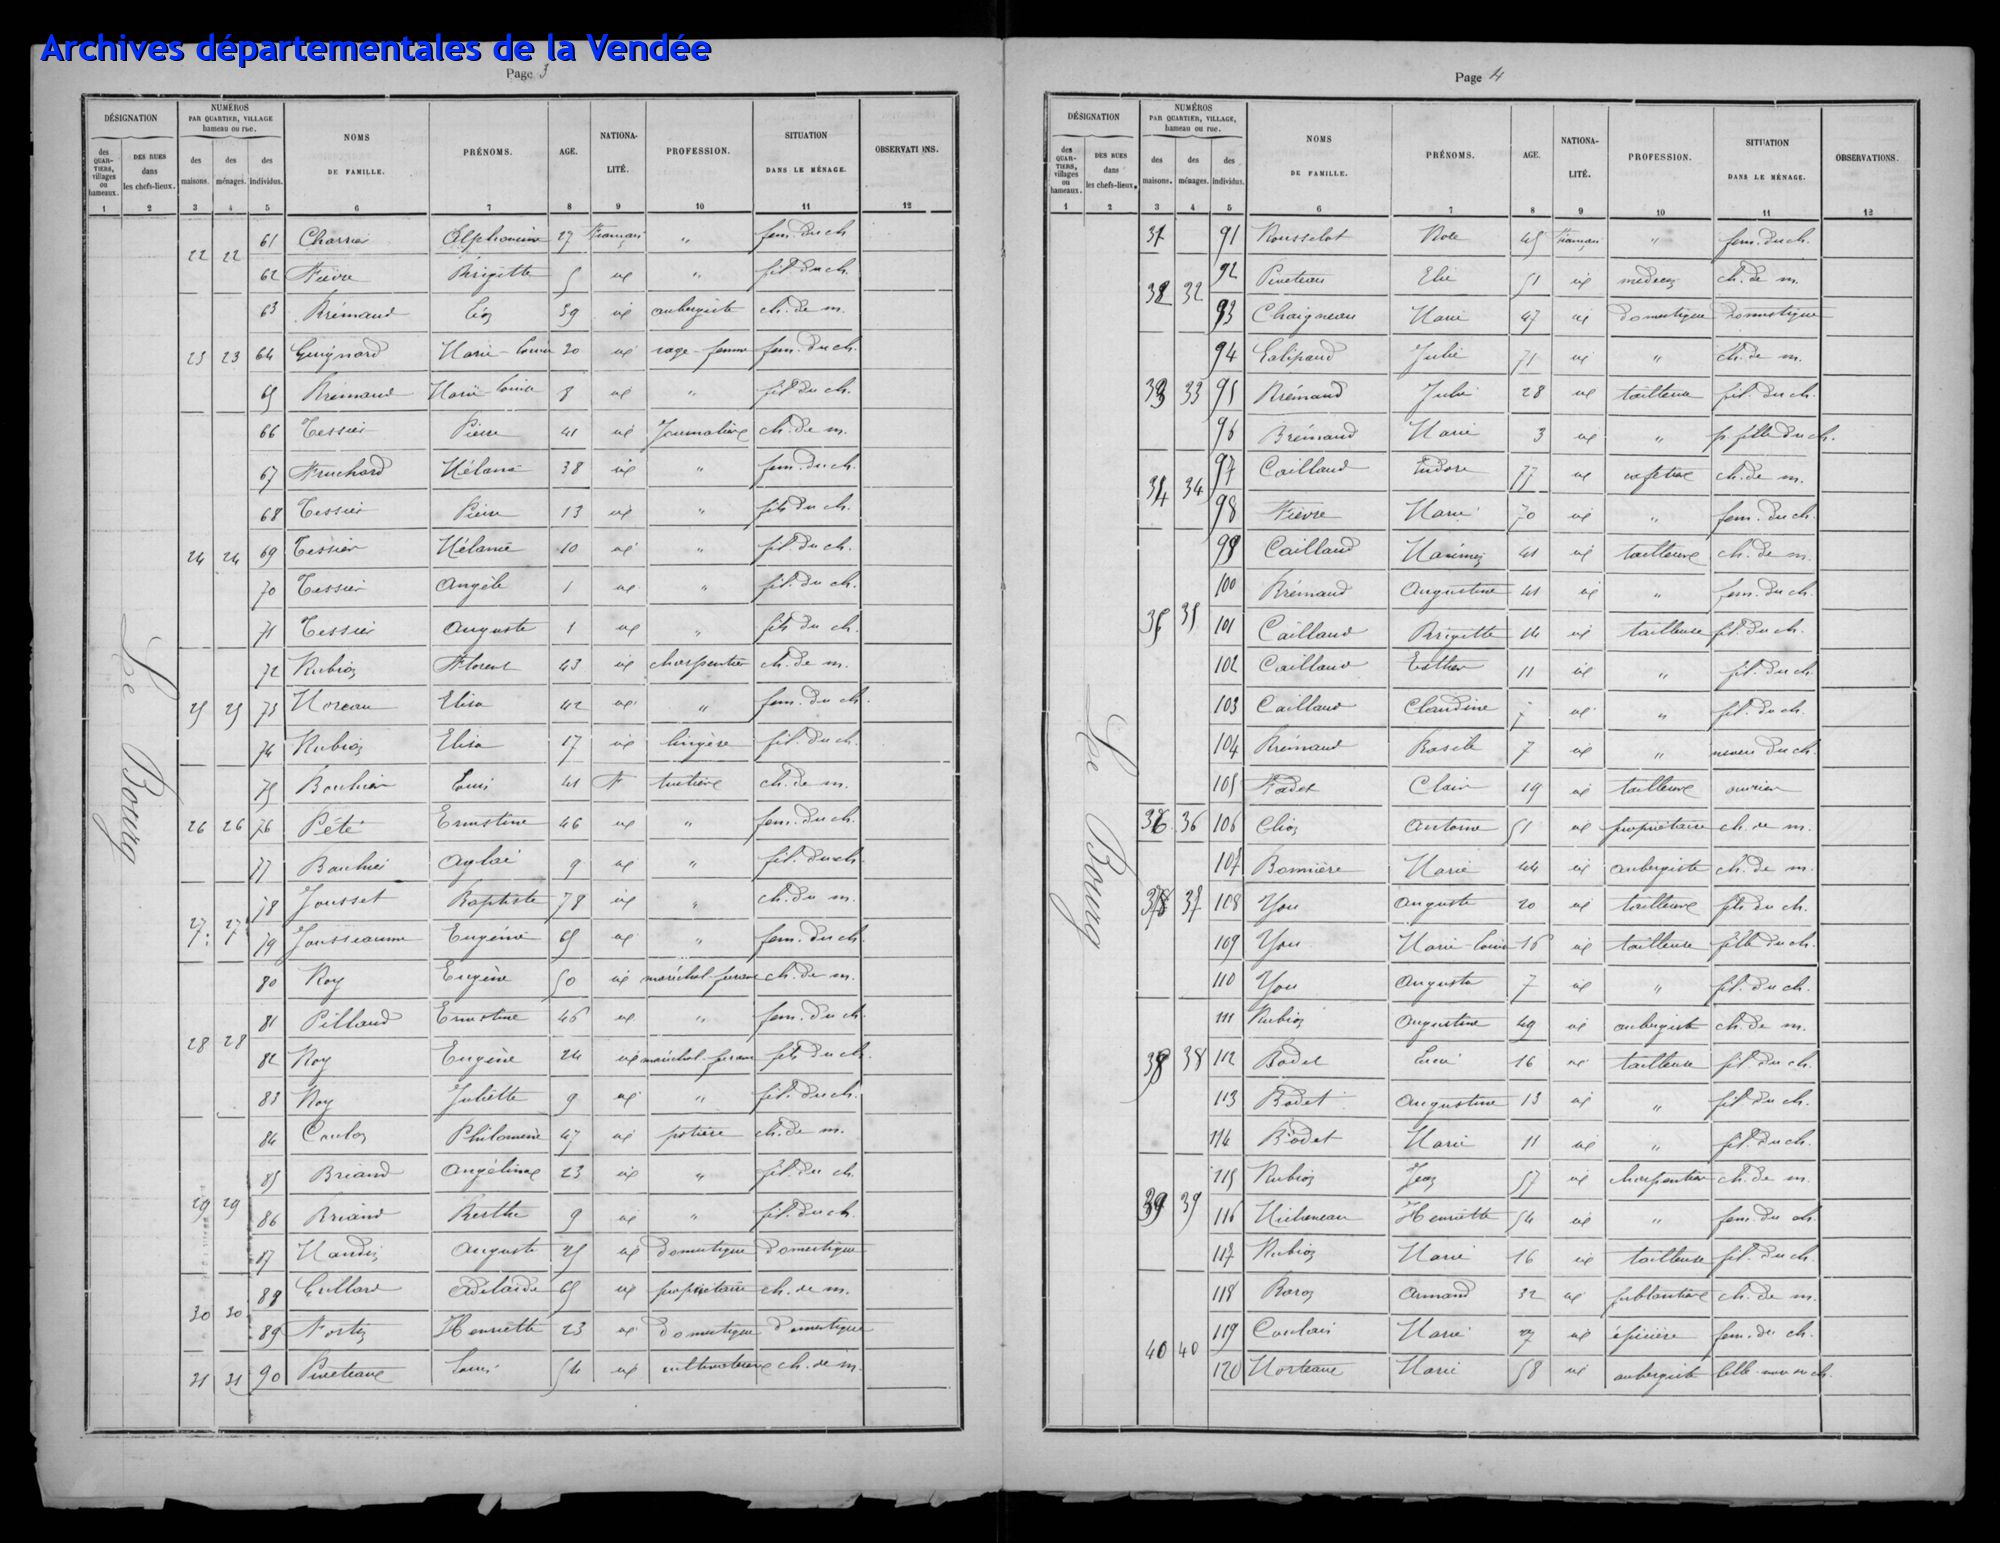 Archives départementales de la Vendée
Page 3
DÉSIGNATION
NUMÉROS
PAR QUARTIER, VILLAGE
hameau ou rue.
NOMS
DE FAMILLE.
PRÉNOMS.
AGE.
NATIONA-
LITÉ.
PROFESSION.
SITUATION
DANS LE MÉNAGE.
OBSERVATIONS.
des QUAR-TIERS, villages ou hameaux.
DES RUES dans les chefs-lieux.
des maisons.
des ménages.
des individus.
1 2 3 4 5 6 7 8 9 10 11 12
Le Bourg
22 22 61 Charrier Alphonsine 27 Française " fem. du ch
62 Fièvre Brigitte 5 id " fil. du ch.
63 Brémaud Léon 39 id aubergiste ch. de m.
23 23 64 Guignard Marie-Louise 30 id sage-femme fem. du ch.
65 Brémaud Marie-Louise 8 id " fil. du ch.
66 Tessier Pierre 41 id Journalier ch. de m.
67 Fruchard Mélanie 38 id " fem. du ch.
68 Tessier Pierre 13 id " fils du ch.
24 24 69 Tessier Mélanie 10 id " fil. du ch.
70 Tessier Angèle 1 id " fil. du ch.
71 Tessier Auguste 1 id " fils du ch.
72 Rubion Florent 43 id charpentier ch. de m.
25 25 73 Moreau Elisa 42 id " fem. du ch.
74 Rubion Elisa 17 id lingère fil. du ch.
75 Bouhier Louis 41 F ch. de m.
26 26 76 Pété Ernestine 46 id " fem. du ch.
77 Bouhier Aglaé 9 id " fil. du ch.
27 27 78 Jousset Baptiste 78 id " ch. du m.
79 Jousseaume Eugénie 65 id " fem. du ch.
80 Roy Eugène 50 id maréchal-ferrant ch. de m.
28 28 81 Pillaud Ernestine 46 id " fem. du ch.
82 Roy Eugène 24 id maréchal-ferrant fils du ch.
83 Roy Juliette 9 id " fil. du ch.
84 Coulon Philomène 47 id potière ch. de m.
85 Briand Angéline 23 id " fil. du ch.
29 29 86 Briand Berthe 9 id " fil. du ch.
87 Auguste 25 id domestique domestique
30 30 88 Adélaïde 65 id propriétaire ch. de m.
89 Fortin Henriette 23 id domestique domestique
31 31 90 Piveteau Louis 54 id cultivateur ch. de m.
Page 4
DÉSIGNATION
NUMÉROS
PAR QUARTIER, VILLAGE,
hameau ou rue.
NOMS
DE FAMILLE.
PRÉNOMS.
AGE.
NATIONA-
LITÉ.
PROFESSION.
SITUATION
DANS LE MÉNAGE.
OBSERVATIONS.
des QUAR-TIERS, villages ou hameaux.
DES RUES dans les chefs-lieux.
des maisons.
des ménages.
des individus.
1 2 3 4 5 6 7 8 9 10 11 12
Le Bourg
31 91 Rousselot Rose 45 Française " fem. du ch.
32 32 92 Piveteau Elie 51 id médecin ch. de m.
93 Chaigneau Marie 47 id domestique domestique
94 Galipaud Julie 71 id " ch. de m.
33 33 95 Brémaud Julie 28 id tailleuse fil. du ch.
96 Brémaud Marie 3 id " p. fille du ch.
34 34 97 Caillaud Eudore 77 id cafetier ch. de m.
98 Fièvre Marie 70 id " fem. du ch.
99 Caillaud Maximin 41 id tailleur ch. de m.
100 Brémaud Augustine 41 id " fem. du ch.
35 35 101 Caillaud Brigitte 14 id tailleuse fil. du ch.
102 Caillaud Esther 11 id " fil. du ch
103 Caillaud Claudine id " fil. du ch.
104 Brémaud Basile 7 id " neveu du ch.
105 Fadet Clair 19 id tailleur ouvrier
36 36 106 Clion Antoine 51 id propriétaire ch. de m.
107 Bonnière Marie 44 id aubergiste ch. de m.
37 37 108 You Auguste 20 id tailleur fils du ch.
109 You Marie-Louise 16 id tailleuse fille du ch.
110 You Augusta 7 id " fil. du ch.
111 Rubion Augustine 49 id aubergiste ch. de m.
38 38 112 Bodet Lucie 16 id tailleuse fil. du ch.
113 Bodet Augustine 13 id " fil. du ch.
114 Bodet Marie 11 id " fil. du ch.
115 Rubion Jean 57 id charpentier ch. de m.
39 39 116 Micheneau Henriette 54 id " fem. du ch.
117 Rubion Marie 16 id tailleuse fil. du ch
118 Baron Armand 32 id ferblantier ch. de m.
40 40 119 Coulais Marie 27 id épicière fem. du ch.
120 Morteau Marie 58 id aubergiste belle-mère du ch.